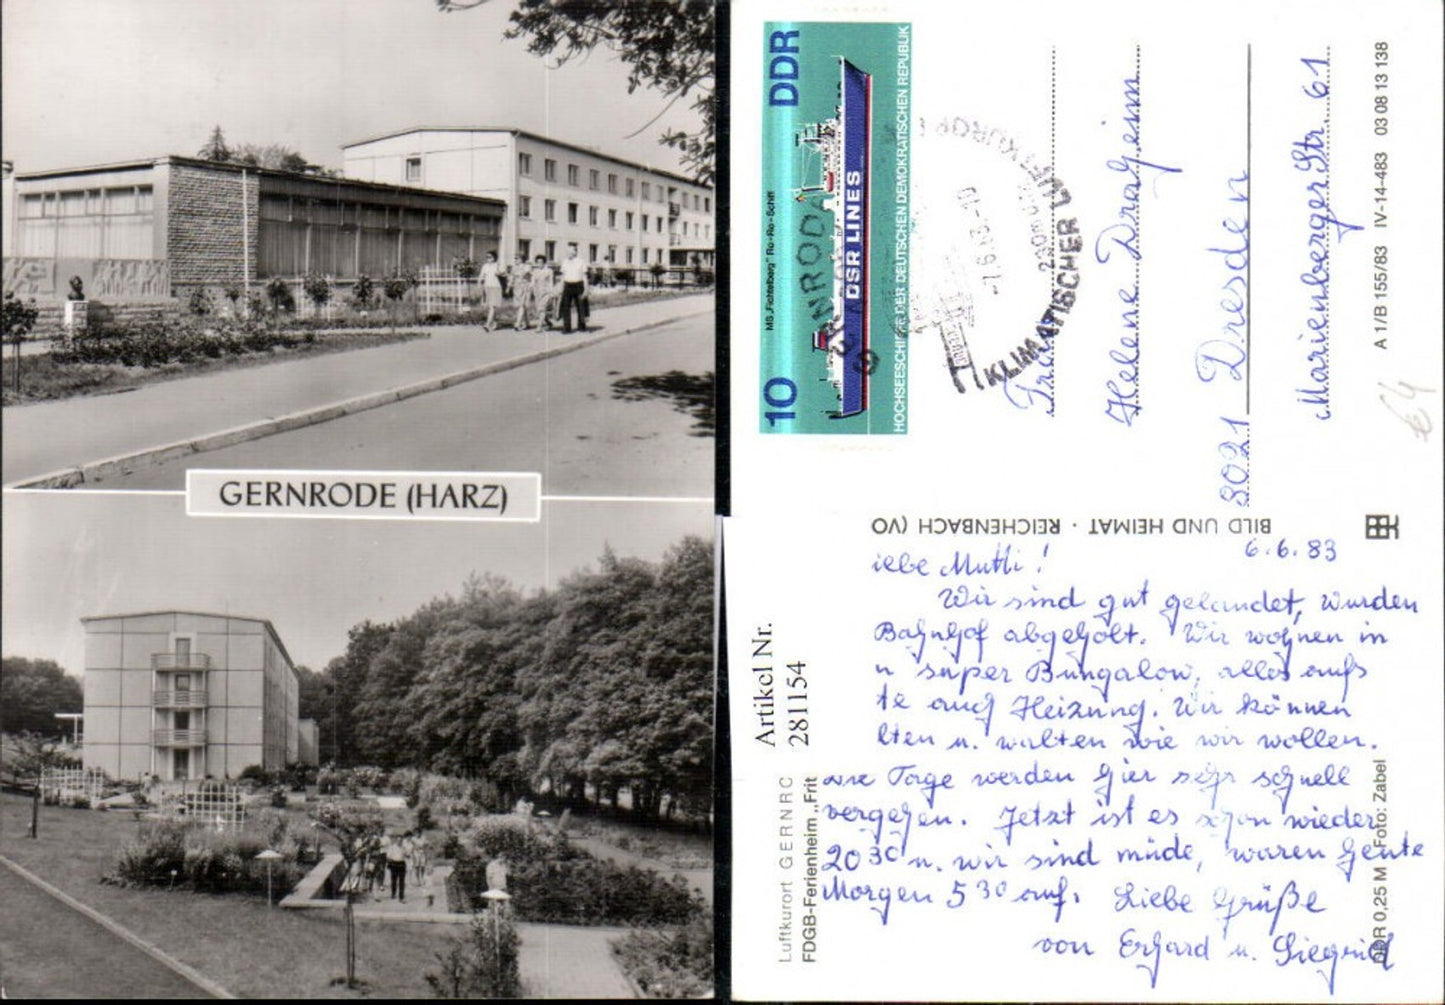 GERNRODE (HARZ)
DDR
10
MS „Fichtelberg" Ro-Ro-Schiff
DSR LINES
HOCHSEESCHIFFE DER DEUTSCHEN DEMOKRATISCHEN REPUBLIK
-7.6.83-10
KLIMATISCHER LUFTKUROR
Frau
Helene Dralheim
8021 Dresden
Marienberger Str 61
A 1/B 155/83 IV-14-483 03 08 13 138
€ 4
BILD UND HEIMAT · REICHENBACH (VO
6.6.83
iebe Mutti!
Wir sind gut gelandet, wurden
Bahnhof abgeholt. Wir wohnen in
n super Bungalow, alles aufs
te auch Heizung. Wir können
lten u. walten wie wir wollen.
Tage werden hier sehr schnell
vergehen. Jetzt ist es schon wieder
20 30 u. wir sind müde, waren heute
Morgen 5 30 auf. Liebe Grüße
von Erhard u. Siegrid
Artikel Nr.
281154
Luftkurort GERNRO
FDGB-Ferienheim „Frit
DDR 0,25 M Foto: Zabel